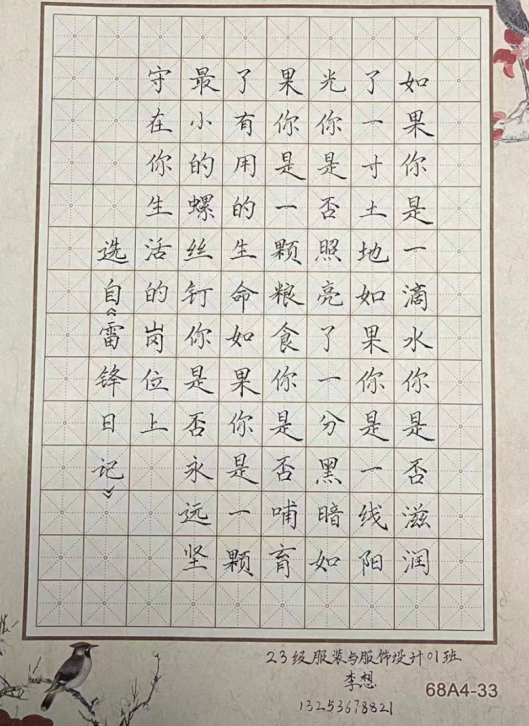 如果你是一滴水你是否滋润
了一寸土地如果你是一线阳
光你是否照亮了一分黑暗如
果你是一颗粮食你是否哺育
了有用的生命如果你是一颗
最小的螺丝钉你是否永远坚
守在你生活的岗位上
选自《雷锋日记》
23级服装与服饰设计01班
李想
13253678821
68A4-33